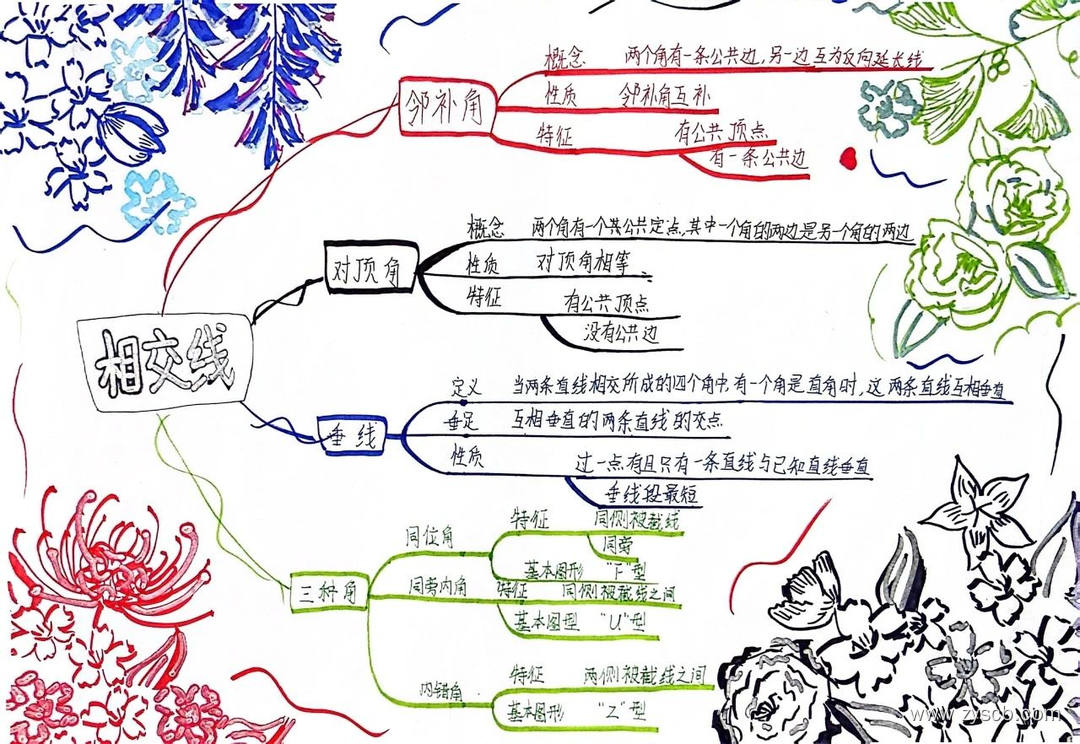 相交线
邻补角
概念 两个角有一条公共边,另一边互为反向延长线
性质 邻补角互补
特征 有公共顶点
有一条公共边
对顶角
概念 两个角有一个公共定点,其中一个角的两边是另一个角的两边
性质 对顶角相等
特征 有公共顶点
没有公共边
垂线
定义 当两条直线相交所成的四个角中,有一个角是直角时,这两条直线互相垂直
垂足 互相垂直的两条直线的交点
性质 过一点,有且只有一条直线与已知直线垂直
垂线段最短
三种角
同位角
特征 同侧被截线
同旁
基本图形 “F”型
同旁内角
特征 同侧被截线之间
基本图型 “U”型
内错角
特征 两侧被截线之间
基本图形 “Z”型
www.zyscb.com